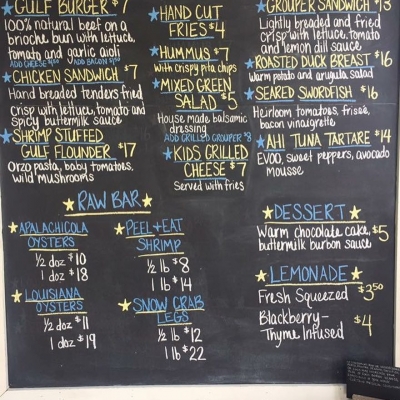 GULF BURGER $7
100% natural beef on a
brioche bun with lettuce,
tomato and garlic aioli
ADD CHEESE $1.50 ADD BACON $1.50
CHICKEN SANDWICH $7
Hand breaded tenders fried
crisp with lettuce, tomato and
spicy buttermilk sauce
SHRIMP STUFFED
GULF FLOUNDER $17
Orzo pasta, baby tomatoes,
wild mushrooms
HAND CUT
FRIES $4
HUMMUS $7
with crispy pita chips
MIXED GREEN
SALAD $5
House made balsamic
dressing
ADD GRILLED GROUPER $8
KIDS GRILLED
CHEESE $7
Served with fries
GROUPER SANDWICH $13
Lightly breaded and fried
crisp with lettuce, tomato
and lemon dill sauce
ROASTED DUCK BREAST $16
Warm potato and arugula salad
SEARED SWORDFISH $16
Heirloom tomatoes, frisée,
bacon vinaigrette
AHI TUNA TARTARE $14
EVOO, sweet peppers, avocado
mousse
RAW BAR
APALACHICOLA
OYSTERS
½ doz $10
1 doz $18
LOUISIANA
OYSTERS
½ doz $11
1 doz $19
PEEL + EAT
SHRIMP
½ lb $8
1 lb $14
SNOW CRAB
LEGS
½ lb $12
1 lb $22
DESSERT
Warm chocolate cake, $5
buttermilk burbon sauce
LEMONADE
Fresh Squeezed $3.50
Blackberry-
Thyme Infused $4